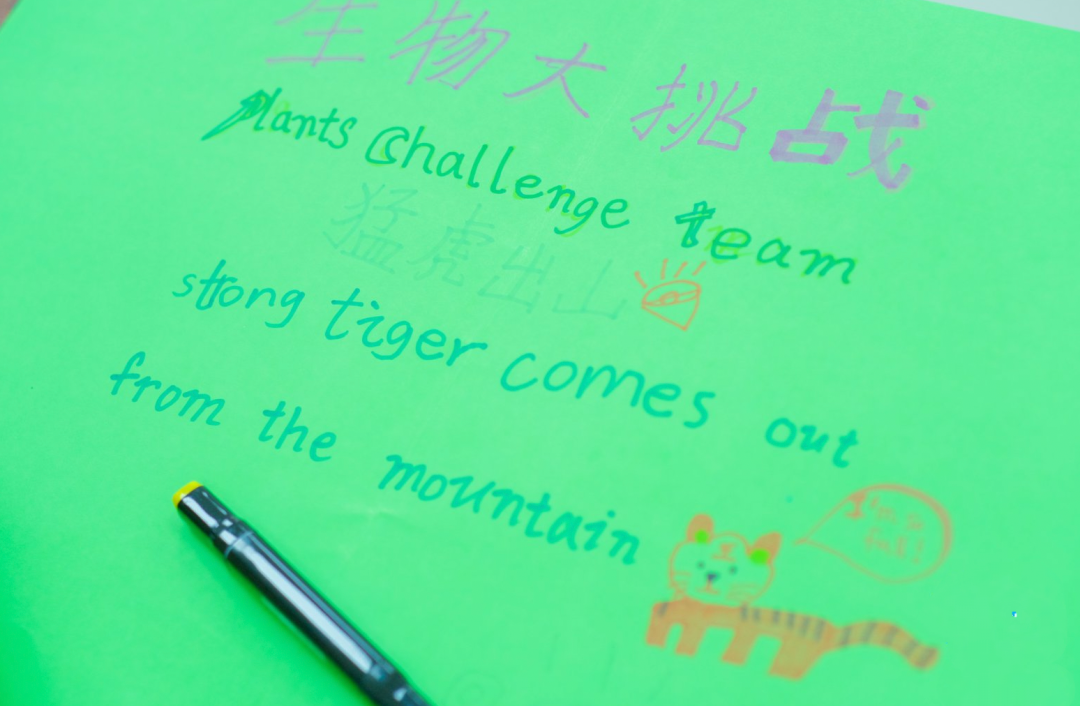 生物大挑战
Plants Challenge team
猛虎出山
strong tiger comes out
from the mountain
王
I'm so
full!